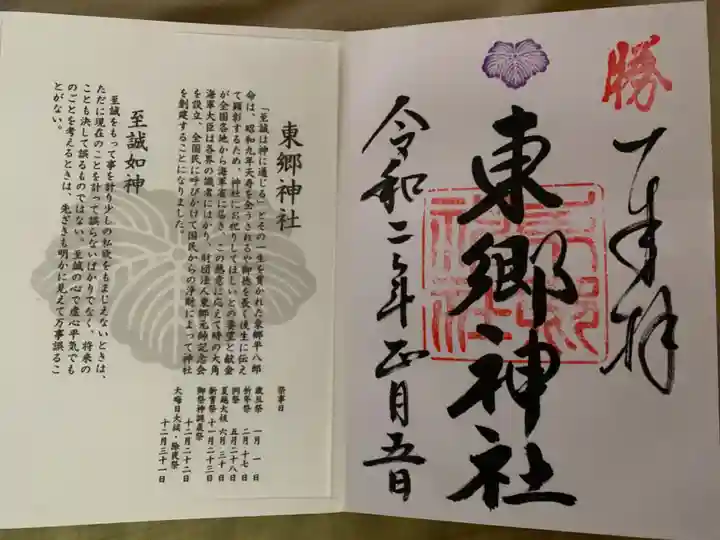 勝
奉拝
東郷神社
令和二年正月五日
東郷神社
「至誠は神に通じる」とその一生を貫かれた東郷平八郎
命は、昭和九年天寿を全うされるや御徳を長く後生に伝え
て顕彰するため、神社にお祀りしてほしいとの要望と献金
が全国各地から海軍省に届き、この熱意に応えて時の大角
海軍大臣は各界の識者にはかり、財団法人東郷元帥記念会
を設立、全国民に呼びかけて国民からの浄財によって神社
を創建することになりました。
至誠如神
至誠をもって事を計り少しの私欲をもまじえないときは、
ただに現在のことを計って誤らないばかりでなく、将来の
ことも決して誤るものではない。至誠の心で虚心平気でも
のごとを考えるときは、先ざきも明かに見えて万事誤るこ
とがない。
祭事日
歳旦祭 一月一日
新年祭 二月十七日
例祭 五月二十八日
夏越大祓 六月三十日
新嘗祭 十一月二十三日
御祭神誕晨祭 十二月二十二日
大晦日大祓・除夜祭 十二月三十一日